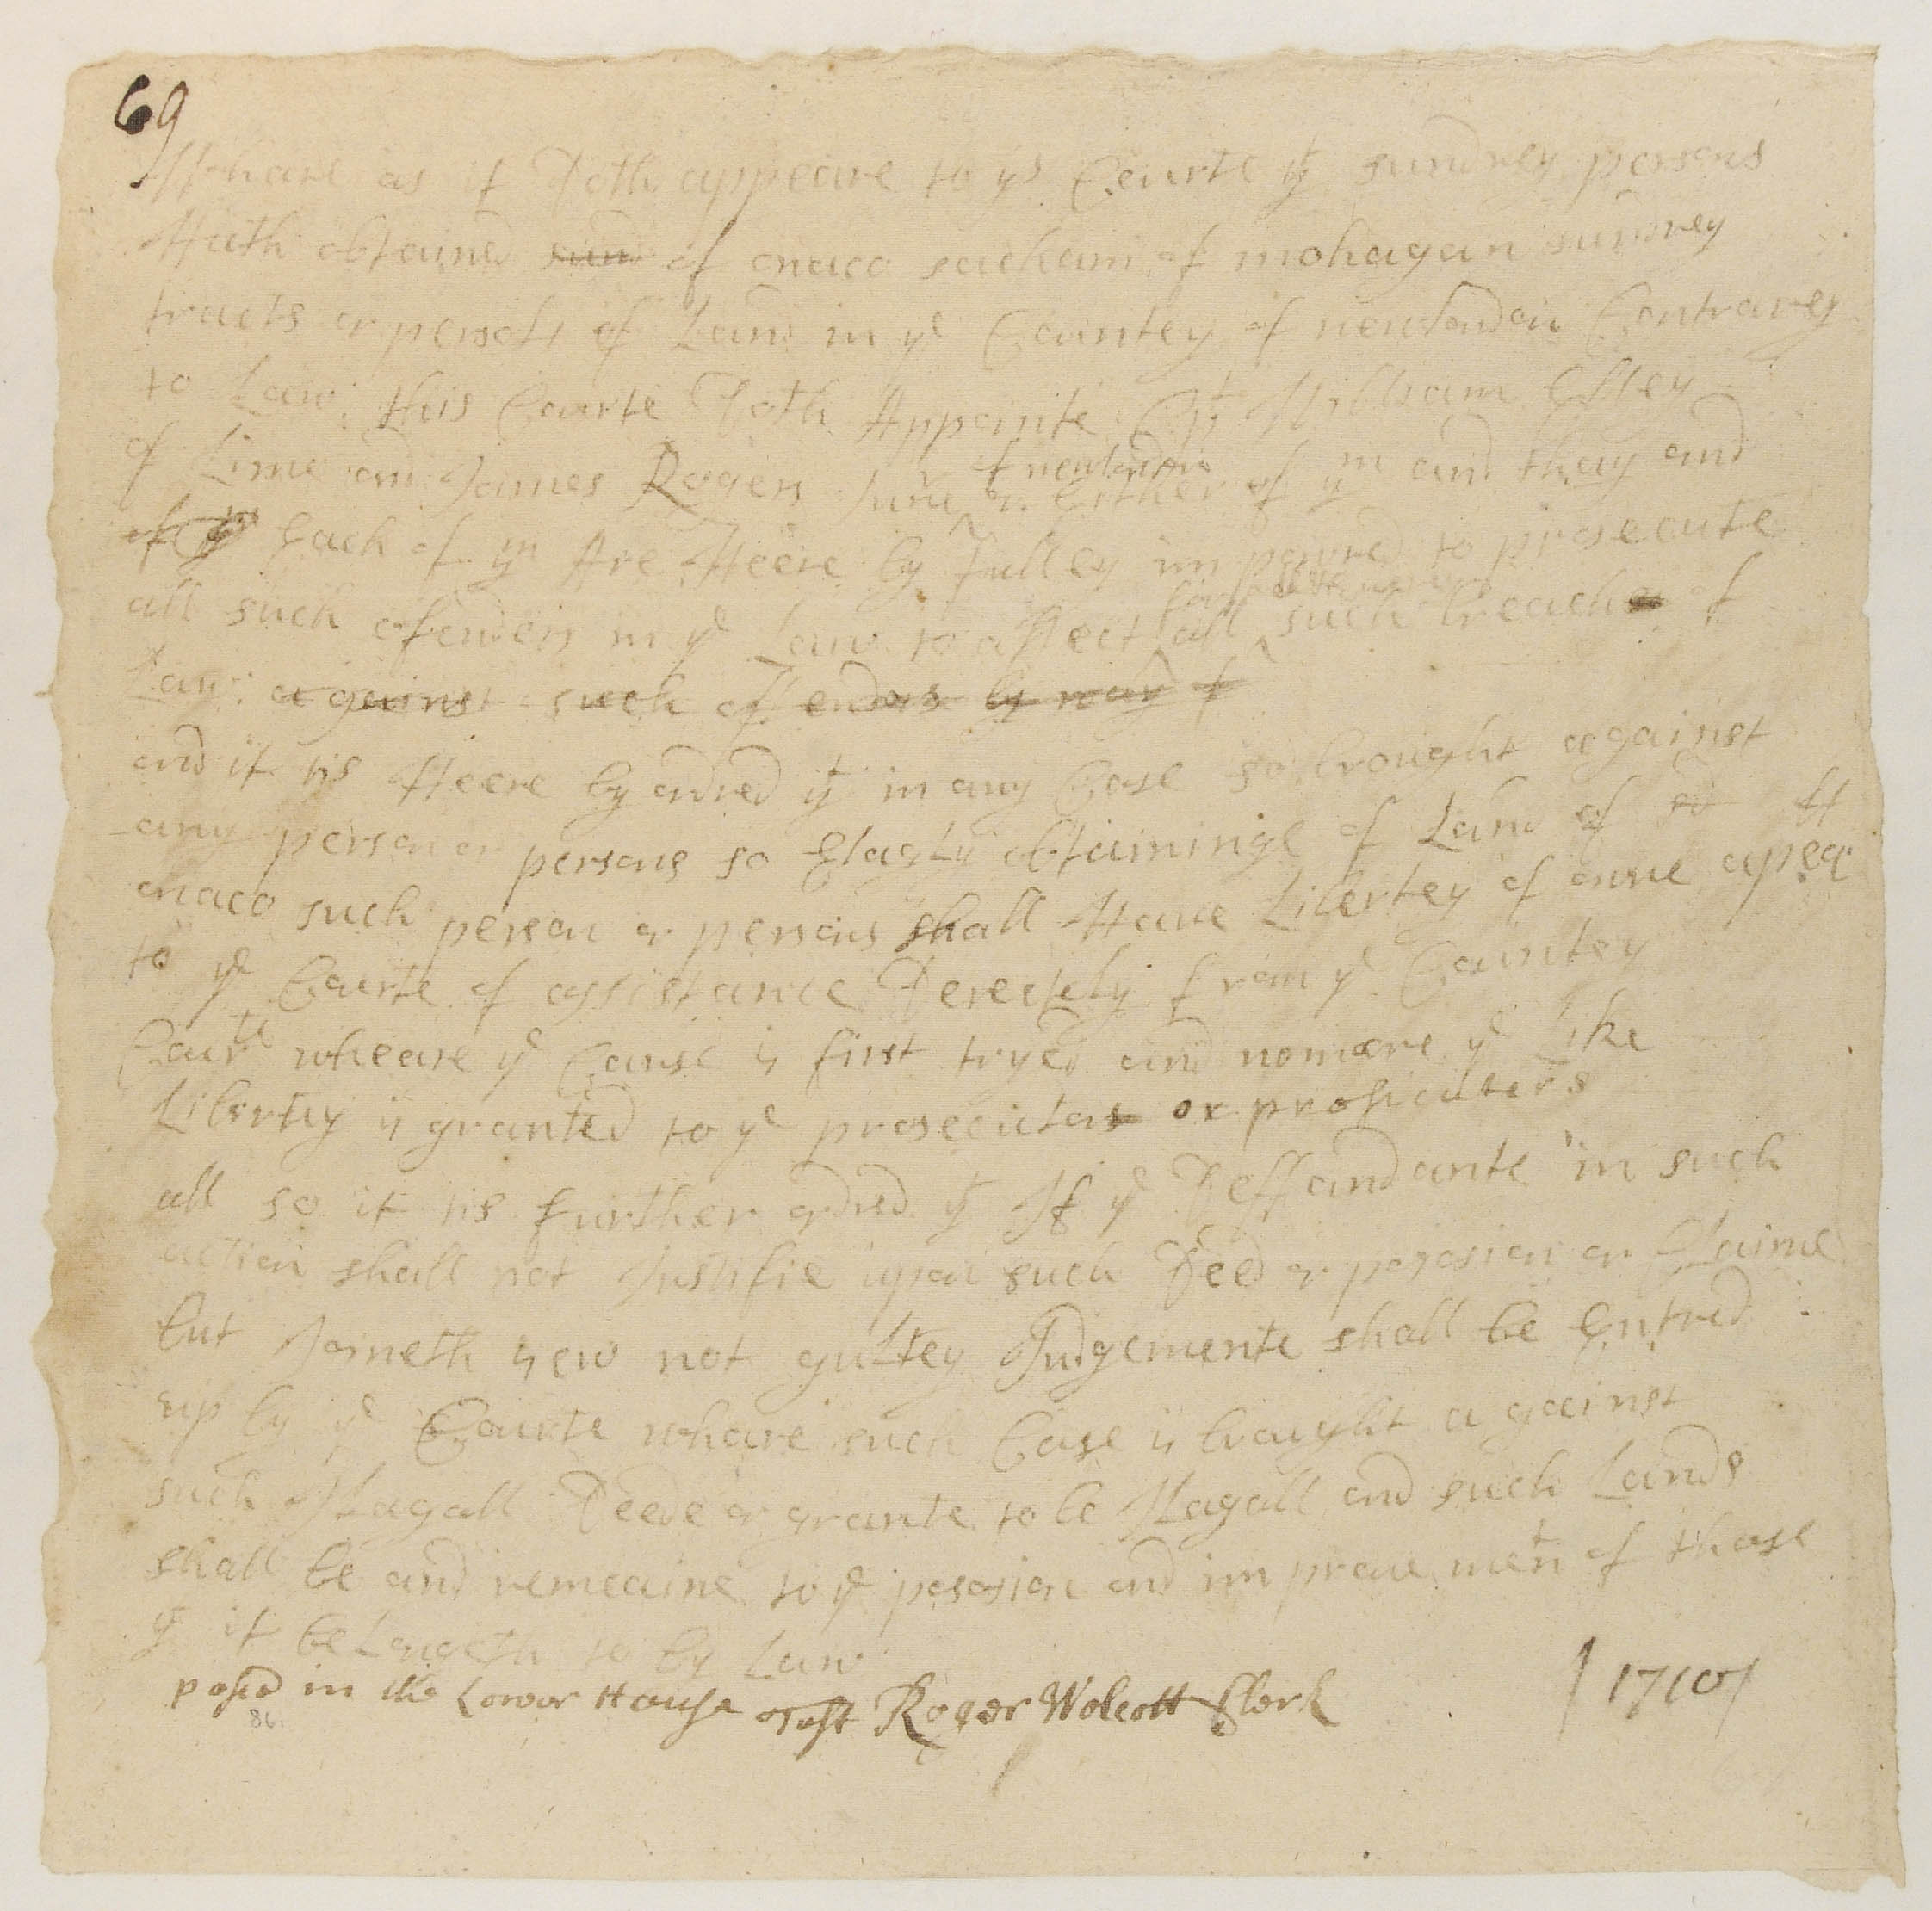 69
Whare as it Doth appeare to ys Courte yt sundrey persons
Hath obtained sund of onaco sacham of mohagan sundrey
tracts or persels of Land in ye Countey of newlondon Contrarey
to Law: this Courte Doth Appointe Cpt William Elley
of Lime and James Rogers Junr of newlondon or Either of ym and thay and
of ym Each of ym Are Heere by fulley impowred to prosecute
all such ofenders in ye Law to affect all such breach of
Law: against such offendors by way of
and it tis Heere by ordred yt in any Case so brought against
any person or persons so Elagly obtaininge of Land of sd
onaco such person or persons shall Have Libertey of onne apeal
to ye Courte of assistance Derectly from ye Countey
Courte wheare ye Cause is first tryed and nomore ye Like
Libertey is granted to ye prosecutor or prosicuters
all so it tis further ordred yt If ye Deffandante in such
action shall not Justifie upon such Deed or posesion or Claime
but Joineth isew not gultey Judgemente shall be Entred
up by ye Courte whare such Case is braught against
such Ilagall Deede or grante to be Ilagall and such Lands
shall be and remeaine to ye posasion and improuement of those
yt it beLongeth to by Law
pased in the Lower House Test Roger Wolcott Clerk
1710
86.